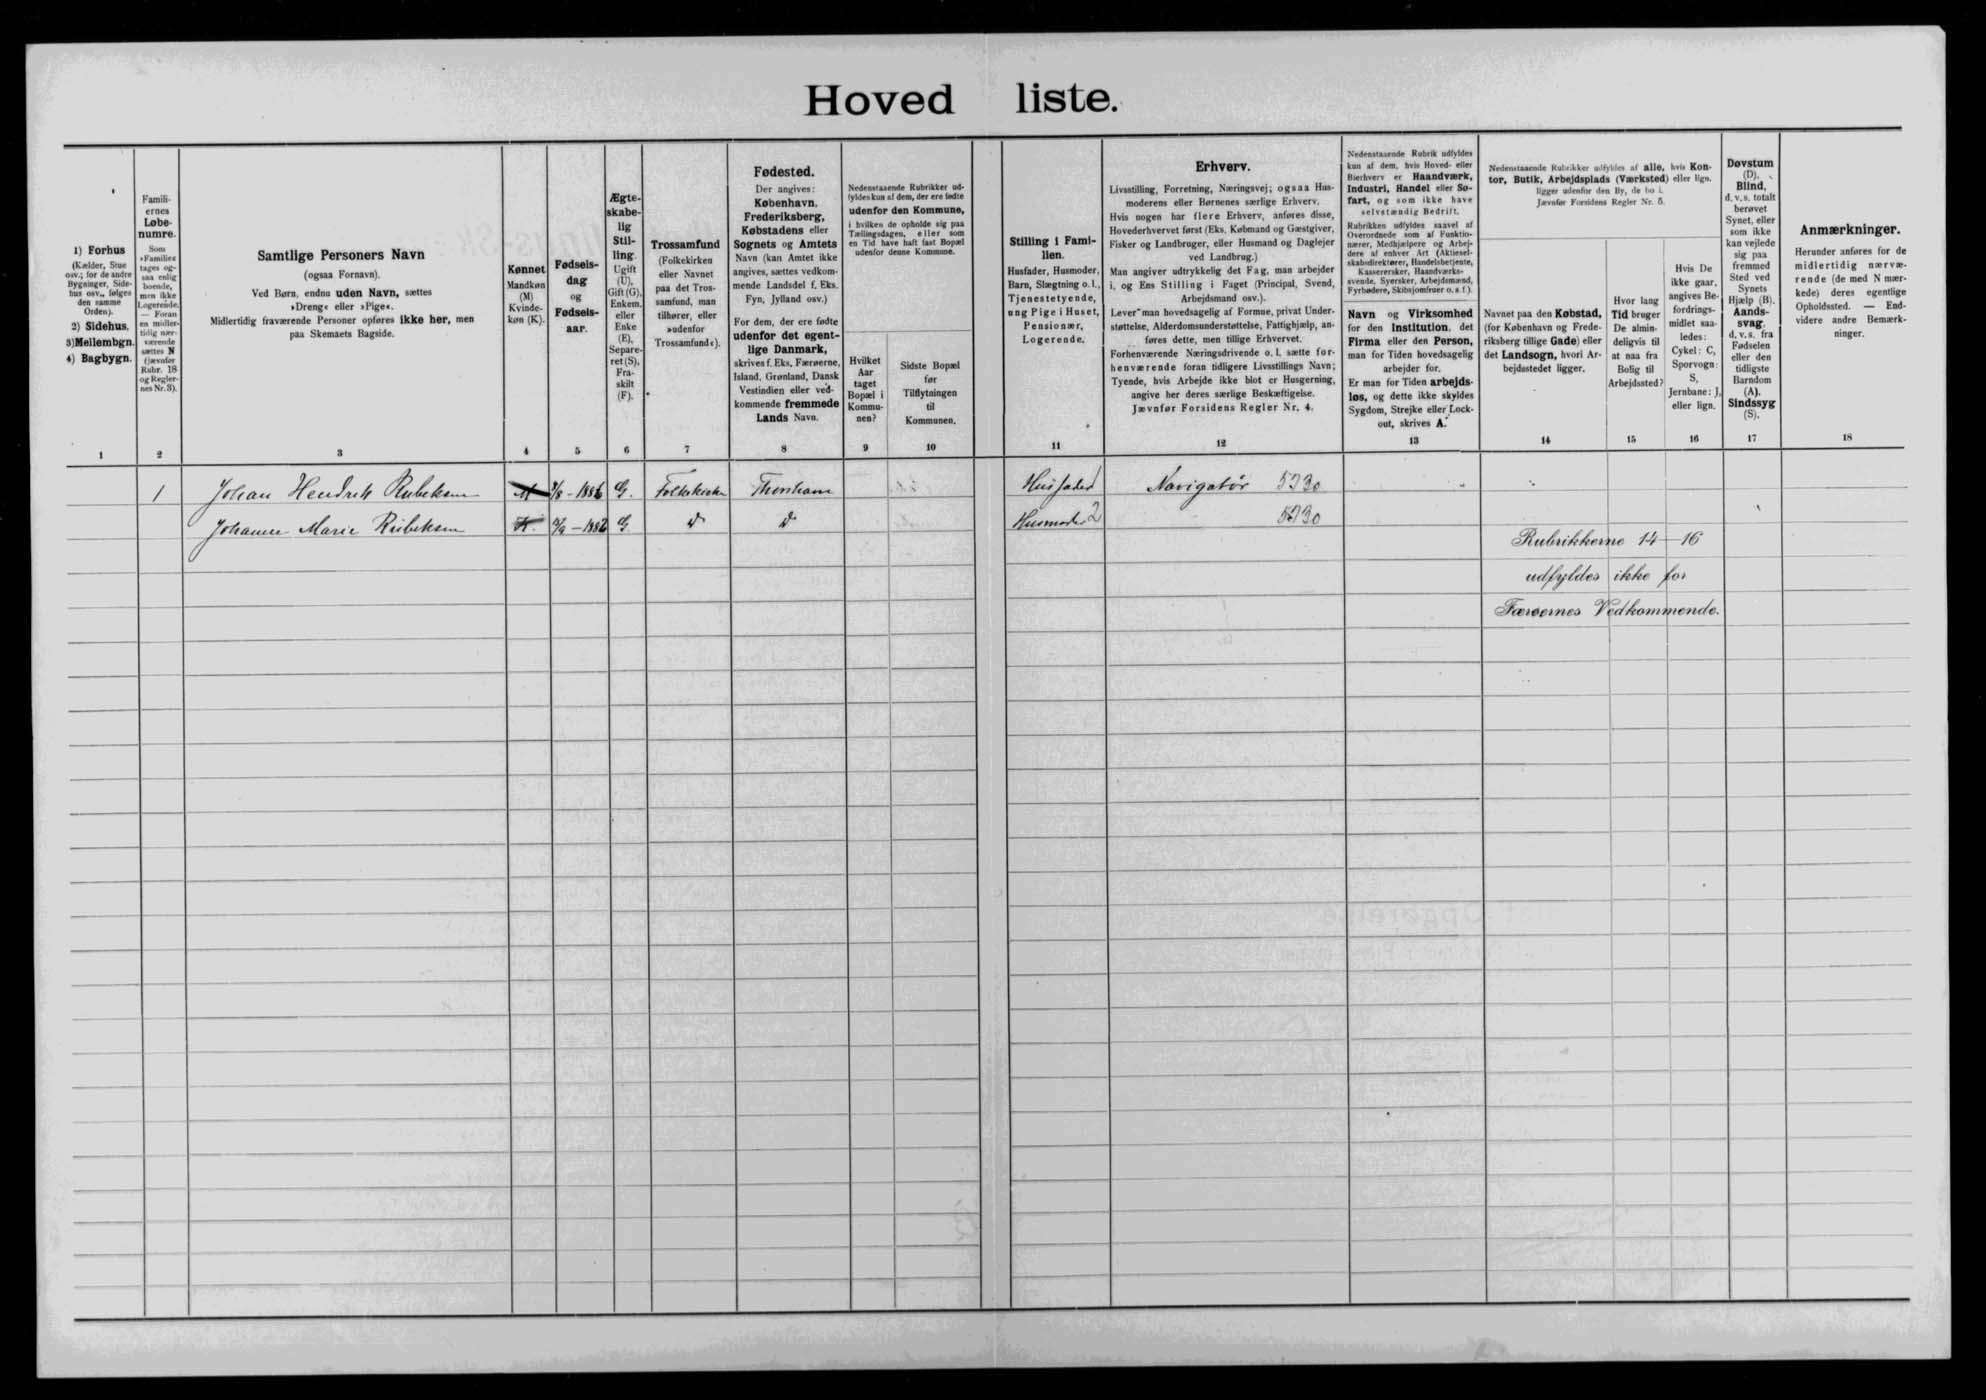 Hoved liste.
1) Forhus
(Kælder, Stue
osv.; for de andre
Bygninger, Side-
hus osv., følges
den samme
Orden).
2) Sidehus.
3) Mellembgn.
4) Bagbygn.
1
Famili-
ernes
Løbe-
numre.
Som
»Familie«
tages og-
saa enlig
boende,
men ikke
Logerende.
— Foran
en midler-
tidig nær-
værende
sættes N
(jævnfør
Rubr. 18
og Regler-
nes Nr. 3).
2
Samtlige Personers Navn
(ogsaa Fornavn).
Ved Børn, endnu uden Navn, sættes
»Dreng« eller »Pige«.
Midlertidig fraværende Personer opføres ikke her, men
paa Skemaets Bagside.
3
Kønnet
Mandkøn
(M)
Kvinde-
køn (K).
4
Fødsels-
dag
og
Fødsels-
aar.
5
Ægte-
skabe-
lig
Stil-
ling.
Ugift
(U),
Gift (G),
Enkem.
eller
Enke
(E),
Separe-
ret (S),
Fra-
skilt
(F).
6
Trossamfund
(Folkekirken
eller Navnet
paa det Tros-
samfund, man
tilhører, eller
»udenfor
Trossamfund«).
7
Fødested.
Der angives:
København,
Frederiksberg,
Købstadens eller
Sognets og Amtets
Navn (kan Amtet ikke
angives, sættes vedkom-
mende Landsdel f. Eks.
Fyn, Jylland osv.)
For dem, der ere fødte
udenfor det egent-
lige Danmark,
skrives f. Eks. Færøerne,
Island, Grønland, Dansk
Vestindien eller ved-
kommende fremmede
Lands Navn.
8
Nedenstaaende Rubrikker ud-
fyldes kun af dem, der ere fødte
udenfor den Kommune,
i hvilken de opholde sig paa
Tællingsdagen, eller som
en Tid have haft fast Bopæl
udenfor denne Kommune.
Hvilket
Aar
taget
Bopæl i
Kommu-
nen?
9
Sidste Bopæl
før
Tilflytningen
til
Kommunen.
10
Stilling i Fami-
lien.
Husfader, Husmoder,
Barn, Slægtning o. l.,
Tjenestetyende,
ung Pige i Huset,
Pensionær,
Logerende.
11
Erhverv.
Livsstilling, Forretning, Næringsvej; ogsaa Hus-
moderens eller Børnenes særlige Erhverv.
Hvis nogen har flere Erhverv, anføres disse,
Hovederhvervet først (Eks. Købmand og Gæstgiver,
Fisker og Landbruger, eller Husmand og Daglejer
ved Landbrug.)
Man angiver udtrykkelig det Fag, man arbejder
i, og Ens Stilling i Faget (Principal, Svend,
Arbejdsmand osv.).
Lever man hovedsagelig af Formue, privat Under-
støttelse, Alderdomsunderstøttelse, Fattighjælp, an-
føres dette, men tillige Erhvervet.
Forhenværende Næringsdrivende o. l. sætte for-
henværende foran tidligere Livsstillings Navn;
Tyende, hvis Arbejde ikke blot er Husgerning,
angive her deres særlige Beskæftigelse.
Jævnfør Forsidens Regler Nr. 4.
12
Nedenstaaende Rubrik udfyldes
kun af dem, hvis Hoved- eller
Bierhverv er Haandværk,
Industri, Handel eller Sø-
fart, og som ikke have
selvstændig Bedrift.
Rubrikken udfyldes saavel af
Overordnede som af Funktio-
nærer, Medhjælpere og Arbej-
dere af enhver Art (Aktiesel-
skabsdirektører, Handelsbetjente,
Kassererskер, Haandværks-
svende, Syersker, Arbejdsmænd,
Fyrbødere, Skibsjomfruer o. s. f.).
Navn og Virksomhed
for den Institution, det
Firma eller den Person,
man for Tiden hovedsagelig
arbejder for.
Er man for Tiden arbejds-
løs, og dette ikke skyldes
Sygdom, Strejke eller Lock-
out, skrives A.
13
Nedenstaaende Rubrikker udfyldes af alle, hvis Kon-
tor, Butik, Arbejdsplads (Værksted) eller lign.
ligger udenfor den By, de bo i.
Jævnfør Forsidens Regler Nr. 5.
Navnet paa den Købstad,
(for København og Frede-
riksberg tillige Gade) eller
det Landsogn, hvori Ar-
bejdsstedet ligger.
14
Hvor lang
Tid bruger
De almin-
deligvis til
at naa fra
Bolig til
Arbejdssted?
15
Hvis De
ikke gaar,
angives Be-
fordrings-
midlet saa-
ledes:
Cykel: C,
Sporvogn:
S,
Jernbane: J,
eller lign.
16
Døvstum
(D).
Blind,
d. v. s. totalt
berøvet
Synet, eller
som ikke
kan vejlede
sig paa
fremmed
Sted ved
Synets
Hjælp (B).
Aands-
svag,
d. v. s. fra
Fødselen
eller den
tidligste
Barndom
(A).
Sindssyg
(S).
17
Anmærkninger.
Herunder anføres for de
midlertidig nærvæ-
rende (de med N mær-
kede) deres egentlige
Opholdssted. — End-
videre andre Bemærk-
ninger.
18
1 Johan Hendrik Rubeksen M /8 - 1886 G. Folkekirke Thorshavn Husfader 1 Navigatør 5730
Johanne Marie Rubeksen K. /9 - 1882 G. Do Do Husmoder 2 5730
Rubrikkerne 14-16
udfyldes ikke for
Færøernes Vedkommende.